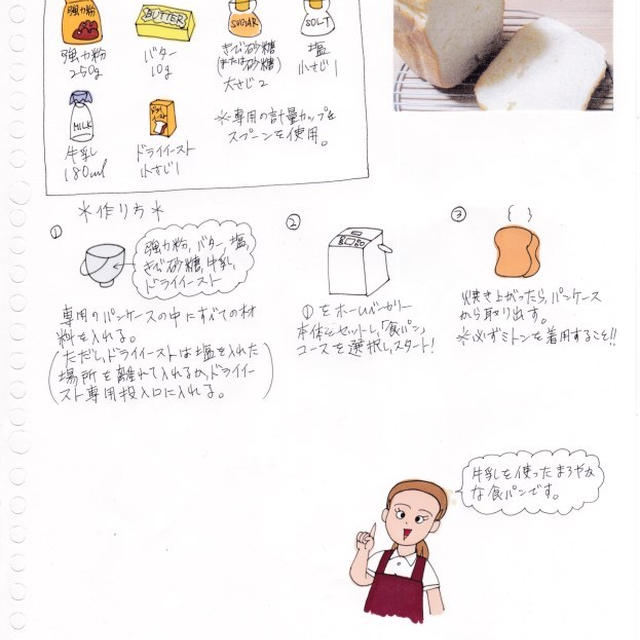 強力粉
BUTTER
SUGAR
SOLT
強力粉
250g
バター
10g
きび砂糖
(または砂糖)
大さじ2
塩
小さじ1
MILK
牛乳
180ml
ドライイースト
小さじ1
※専用の計量カップ&
スプーンを使用。
*作り方*
①
強力粉,バター,塩,
きび砂糖,牛乳,
ドライイースト
専用のパンケースの中にすべての材
料を入れる。
(ただし,ドライイーストは塩を入れた
場所を離れて入れるか,ドライイー
スト専用投入口に入れる。)
②
①をホームベーカリー
本体にセットし,「食パン」
コースを選択し,スタート!
③
焼き上がったら,パンケース
から取り出す。
※必ずミトンを着用すること!!
牛乳を使ったまろやか
な食パンです。